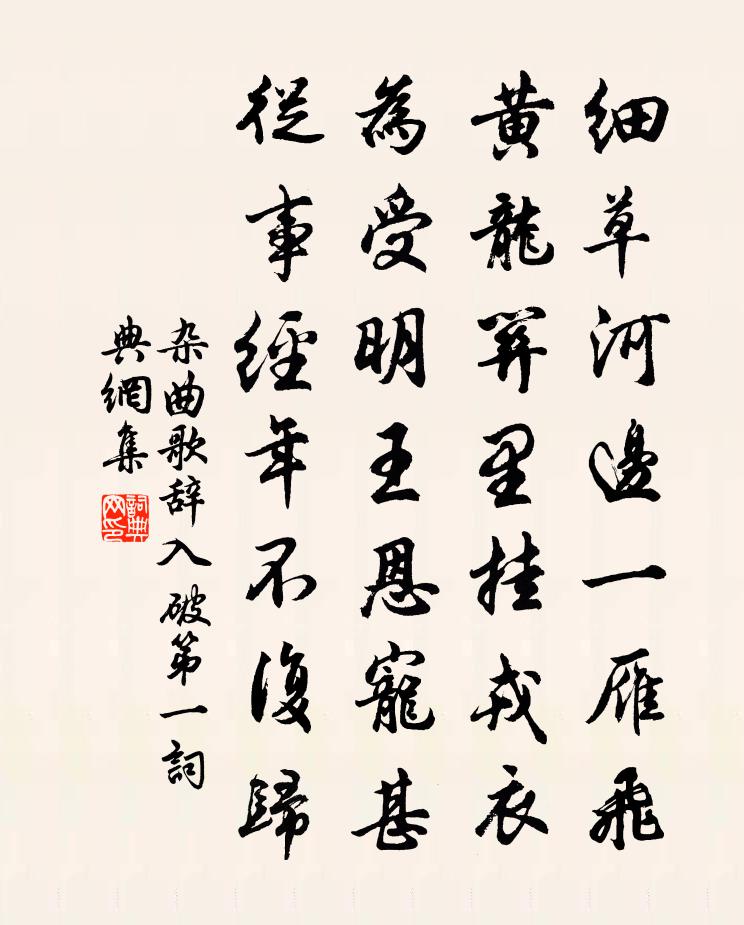 細草河邊一雁飛
黃龍關里挂戎衣
為受明王恩寵甚
從事經年不復歸
杂曲歌辞入破第一詞
典網集
詞典
网印